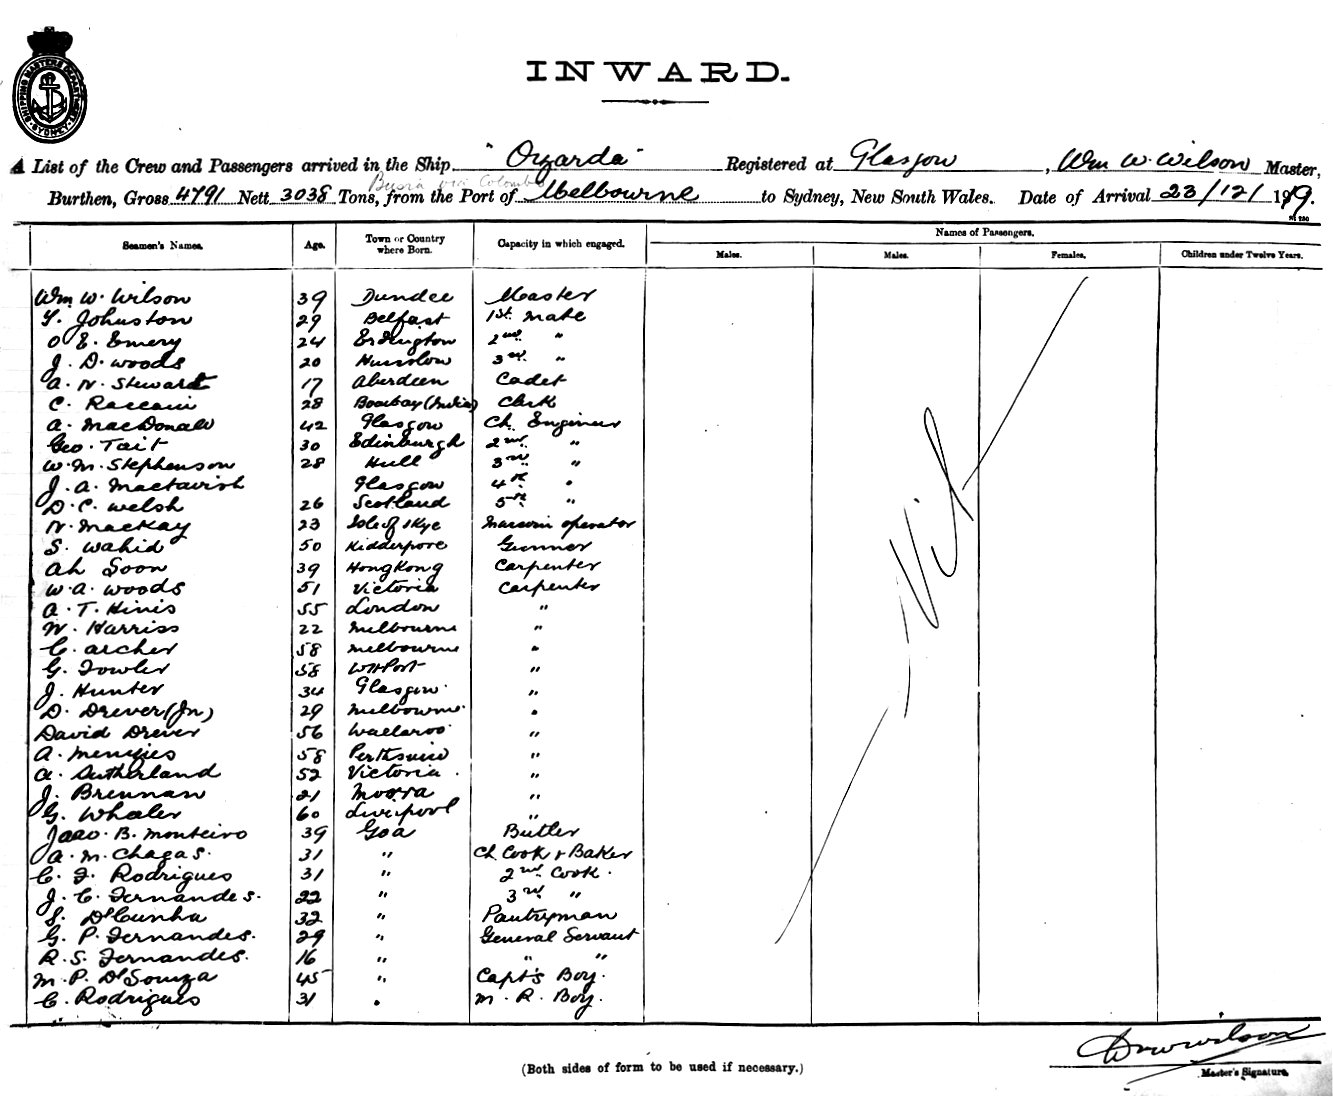 SHIPPING MASTERS DEPARTMENT SYDNEY
INWARD.
A List of the Crew and Passengers arrived in the Ship "Ozarda" Registered at Glasgow, Wm W. Wilson Master,
Busra via Colombo
Burthen, Gross 4791 Nett 3038 Tons, from the Port of Melbourne to Sydney, New South Wales. Date of Arrival 23/12/1919.
Seamen's Names. Age. Town or Country where Born. Capacity in which engaged. Names of Passengers.
Males. Males. Females. Children under Twelve Years.
Wm W. Wilson 39 Dundee Master
Y. Johnston 29 Belfast 1st Mate
O E. Emery 24 Erdington 2nd "
J. D. Woods 20 3rd "
A. N. Stewart 17 Aberdeen Cadet
C. 28 Boombay (India) Clerk
A. MacDonald 42 Glasgow Ch. Engineer
Geo. Tait 30 Edinburgh 2nd "
W. M. Stephenson 28 Hull 3rd "
J. A. Mactavish Glasgow 4th "
D. C. Welsh 26 Scotland 5th "
N. MacKay 23 Isle of Skye Marconi operator
S. Wahid 50 Kidderpore Gunner
Ah Soon 39 Hong Kong Carpenter
W. A. Woods 51 Victoria Carpenter
A. T. Hinis 55 London "
W. Harriss 22 Melbourne "
C. Archer 58 Melbourne "
G. Fowler 58 "
J. Hunter 34 Glasgow "
D. Drever (Jn) 29 Melbourne "
David Drever 56 Wallaroo "
A. Menzies 58 Perthshire "
A. Sutherland 52 Victoria "
J. Brennan 21 Moora "
G. Whaler 60 Liverpool "
Joao B. Monteiro 39 Goa Butler
A. M. Chagas. 31 " Ch Cook & Baker
C. F. Rodrigues 31 " 2nd Cook.
J. C. Fernandes. 22 " 3rd "
S. D'Cunha 32 " Pantryman
G. P. Fernandes. 29 " General Servant
R. S. Fernandes. 16 " " "
M. P. D'Souza 45 " Capt's Boy.
C. Rodrigues 31 " M. R. Boy.
Nil
Wm W Wilson
Master's Signature.
(Both sides of form to be used if necessary.)